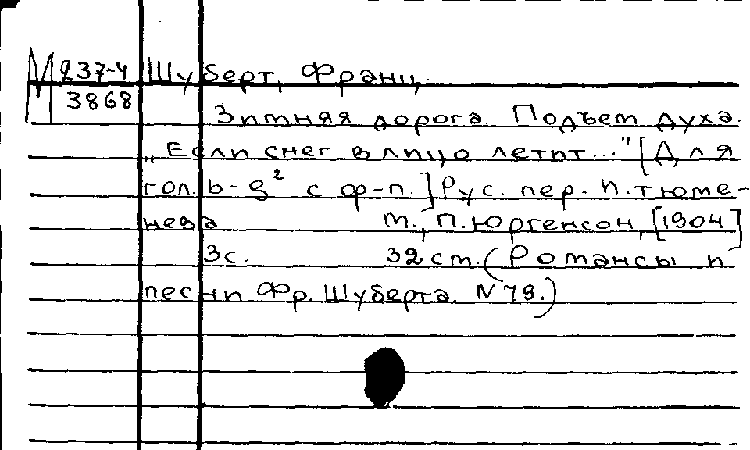 М 237-4 Шуберт, Франц.
3868
Зимняя дорога. Подъем духа.
„Если снег в лицо летит..." [Для
гол. b-g² с ф-п.] Рус. пер. И. Тюме-
нева М., П. Юргенсон, [1904]
3с. 32 см. (Романсы и
песни Фр. Шуберта. N 79.)